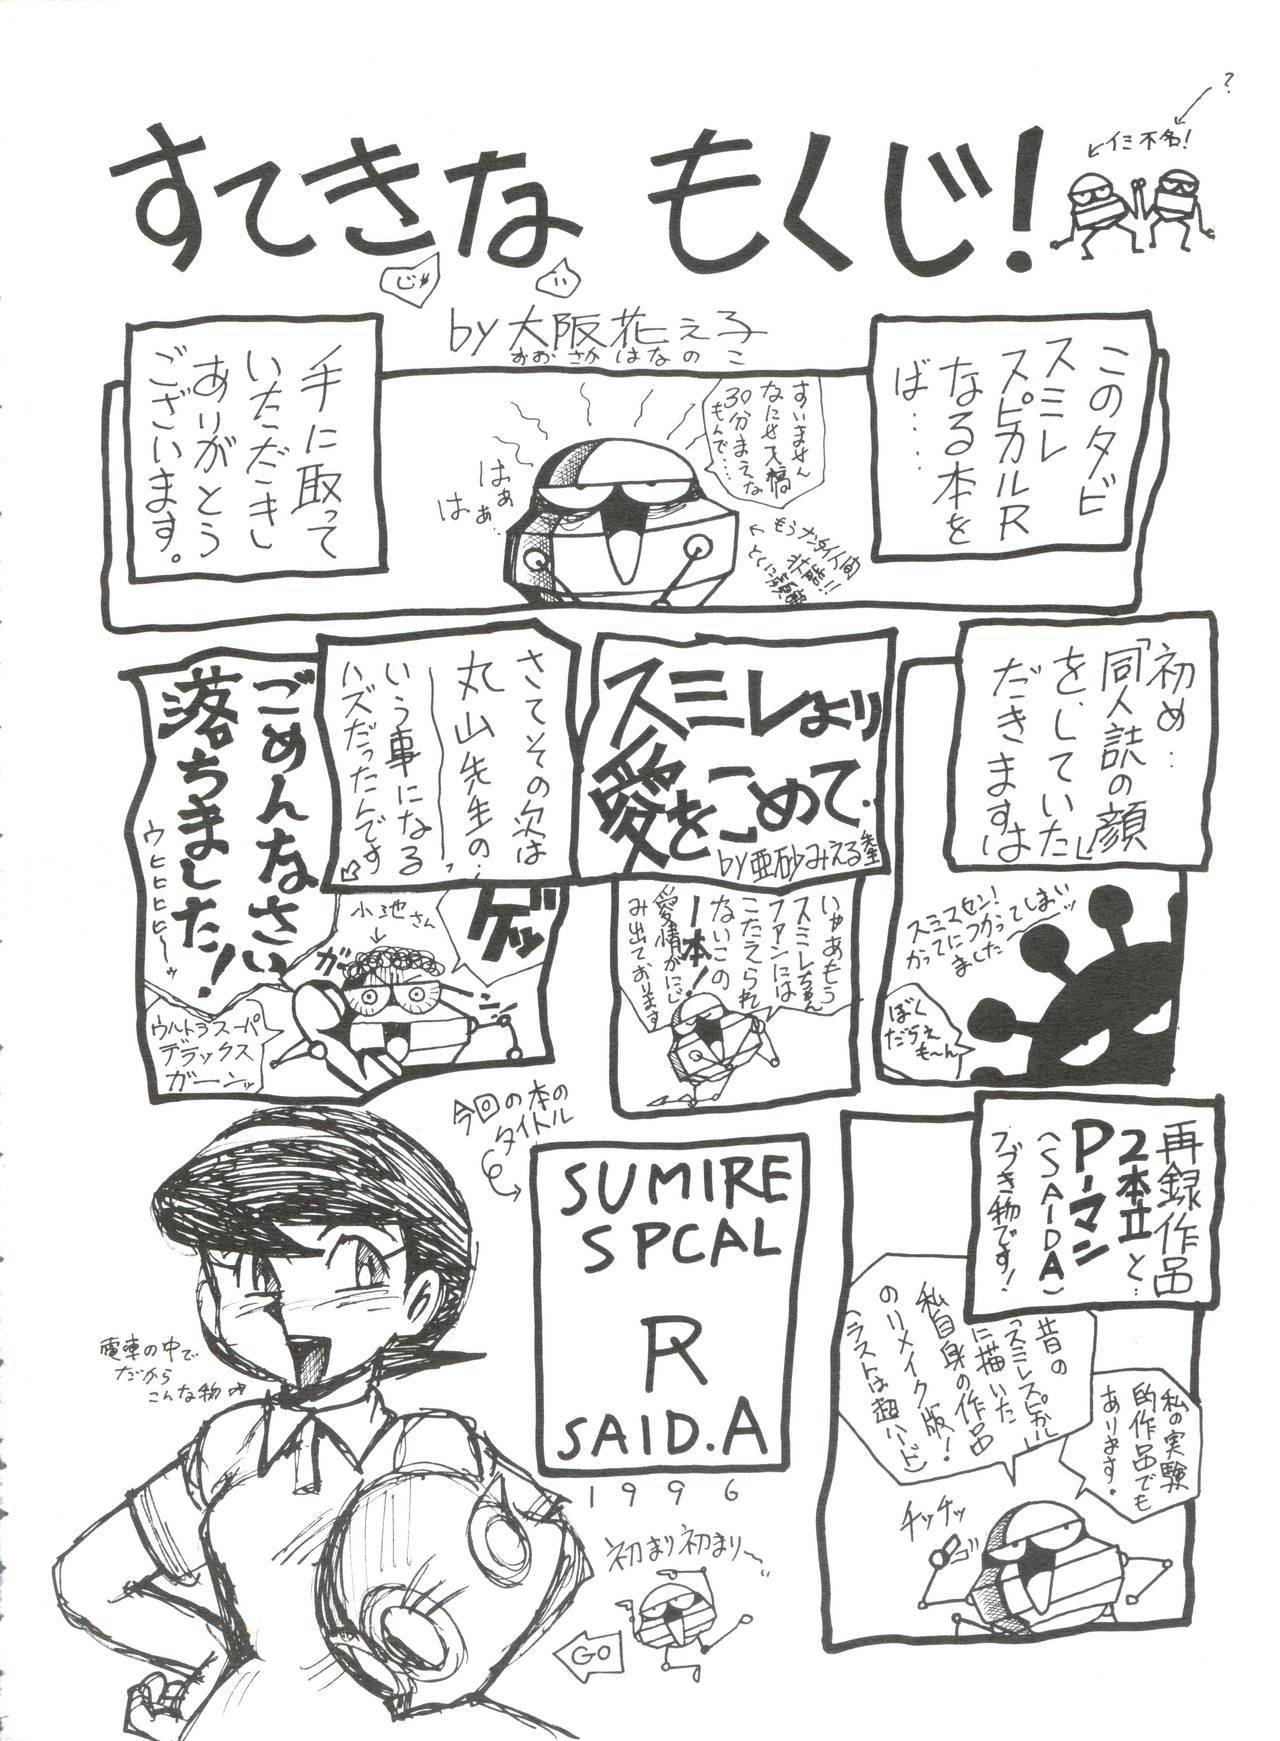 すてきな もくじ!
じゃ
?
←イミ不名!
by 大阪花え子
おおさかはなのこ
このタビ
スミレ
スピカルR
なる本を
ば……
すいません
なにせ入稿
30分まえな
もんで…
はぁ
はぁ…
手に取って
いただきし
ありがとう
ございます。
初め…
「同人誌の顔
をしていた」
だきますは
スミスセン!
かってにつかってしまいッ
ました〜
ぼく
だらえ
も〜ん
スミレより
愛をこめて.
by亜砂みえる先生
いやあもう
スミレちゃん
ファンには
こたえられ
ないこの
一本!
愛情がにじ
み出ております
さてその次は
丸山先生の…
いう事になる
ハズだったんです
ゲッ
小池さん
ガーン
ごめんなさい
落ちました!
ウヒヒヒヒ〜ッ
ウルトラスーパー
デラックス
ガーンッ
再録作品
2本立と…
P-マン
(SAIDA)
フブき物です!
私の実験
的作品でも
あります。
昔の
「スミレスピカル」
に描いた
私自身の作品
のリメイク版!
(ラストは超ハード)
チッチッ
今回の本の
タイトル
SUMIRE
SPCAL
R
SAID.A
1996
電車の中で
だから
こんな物
初まり初まり〜
GO